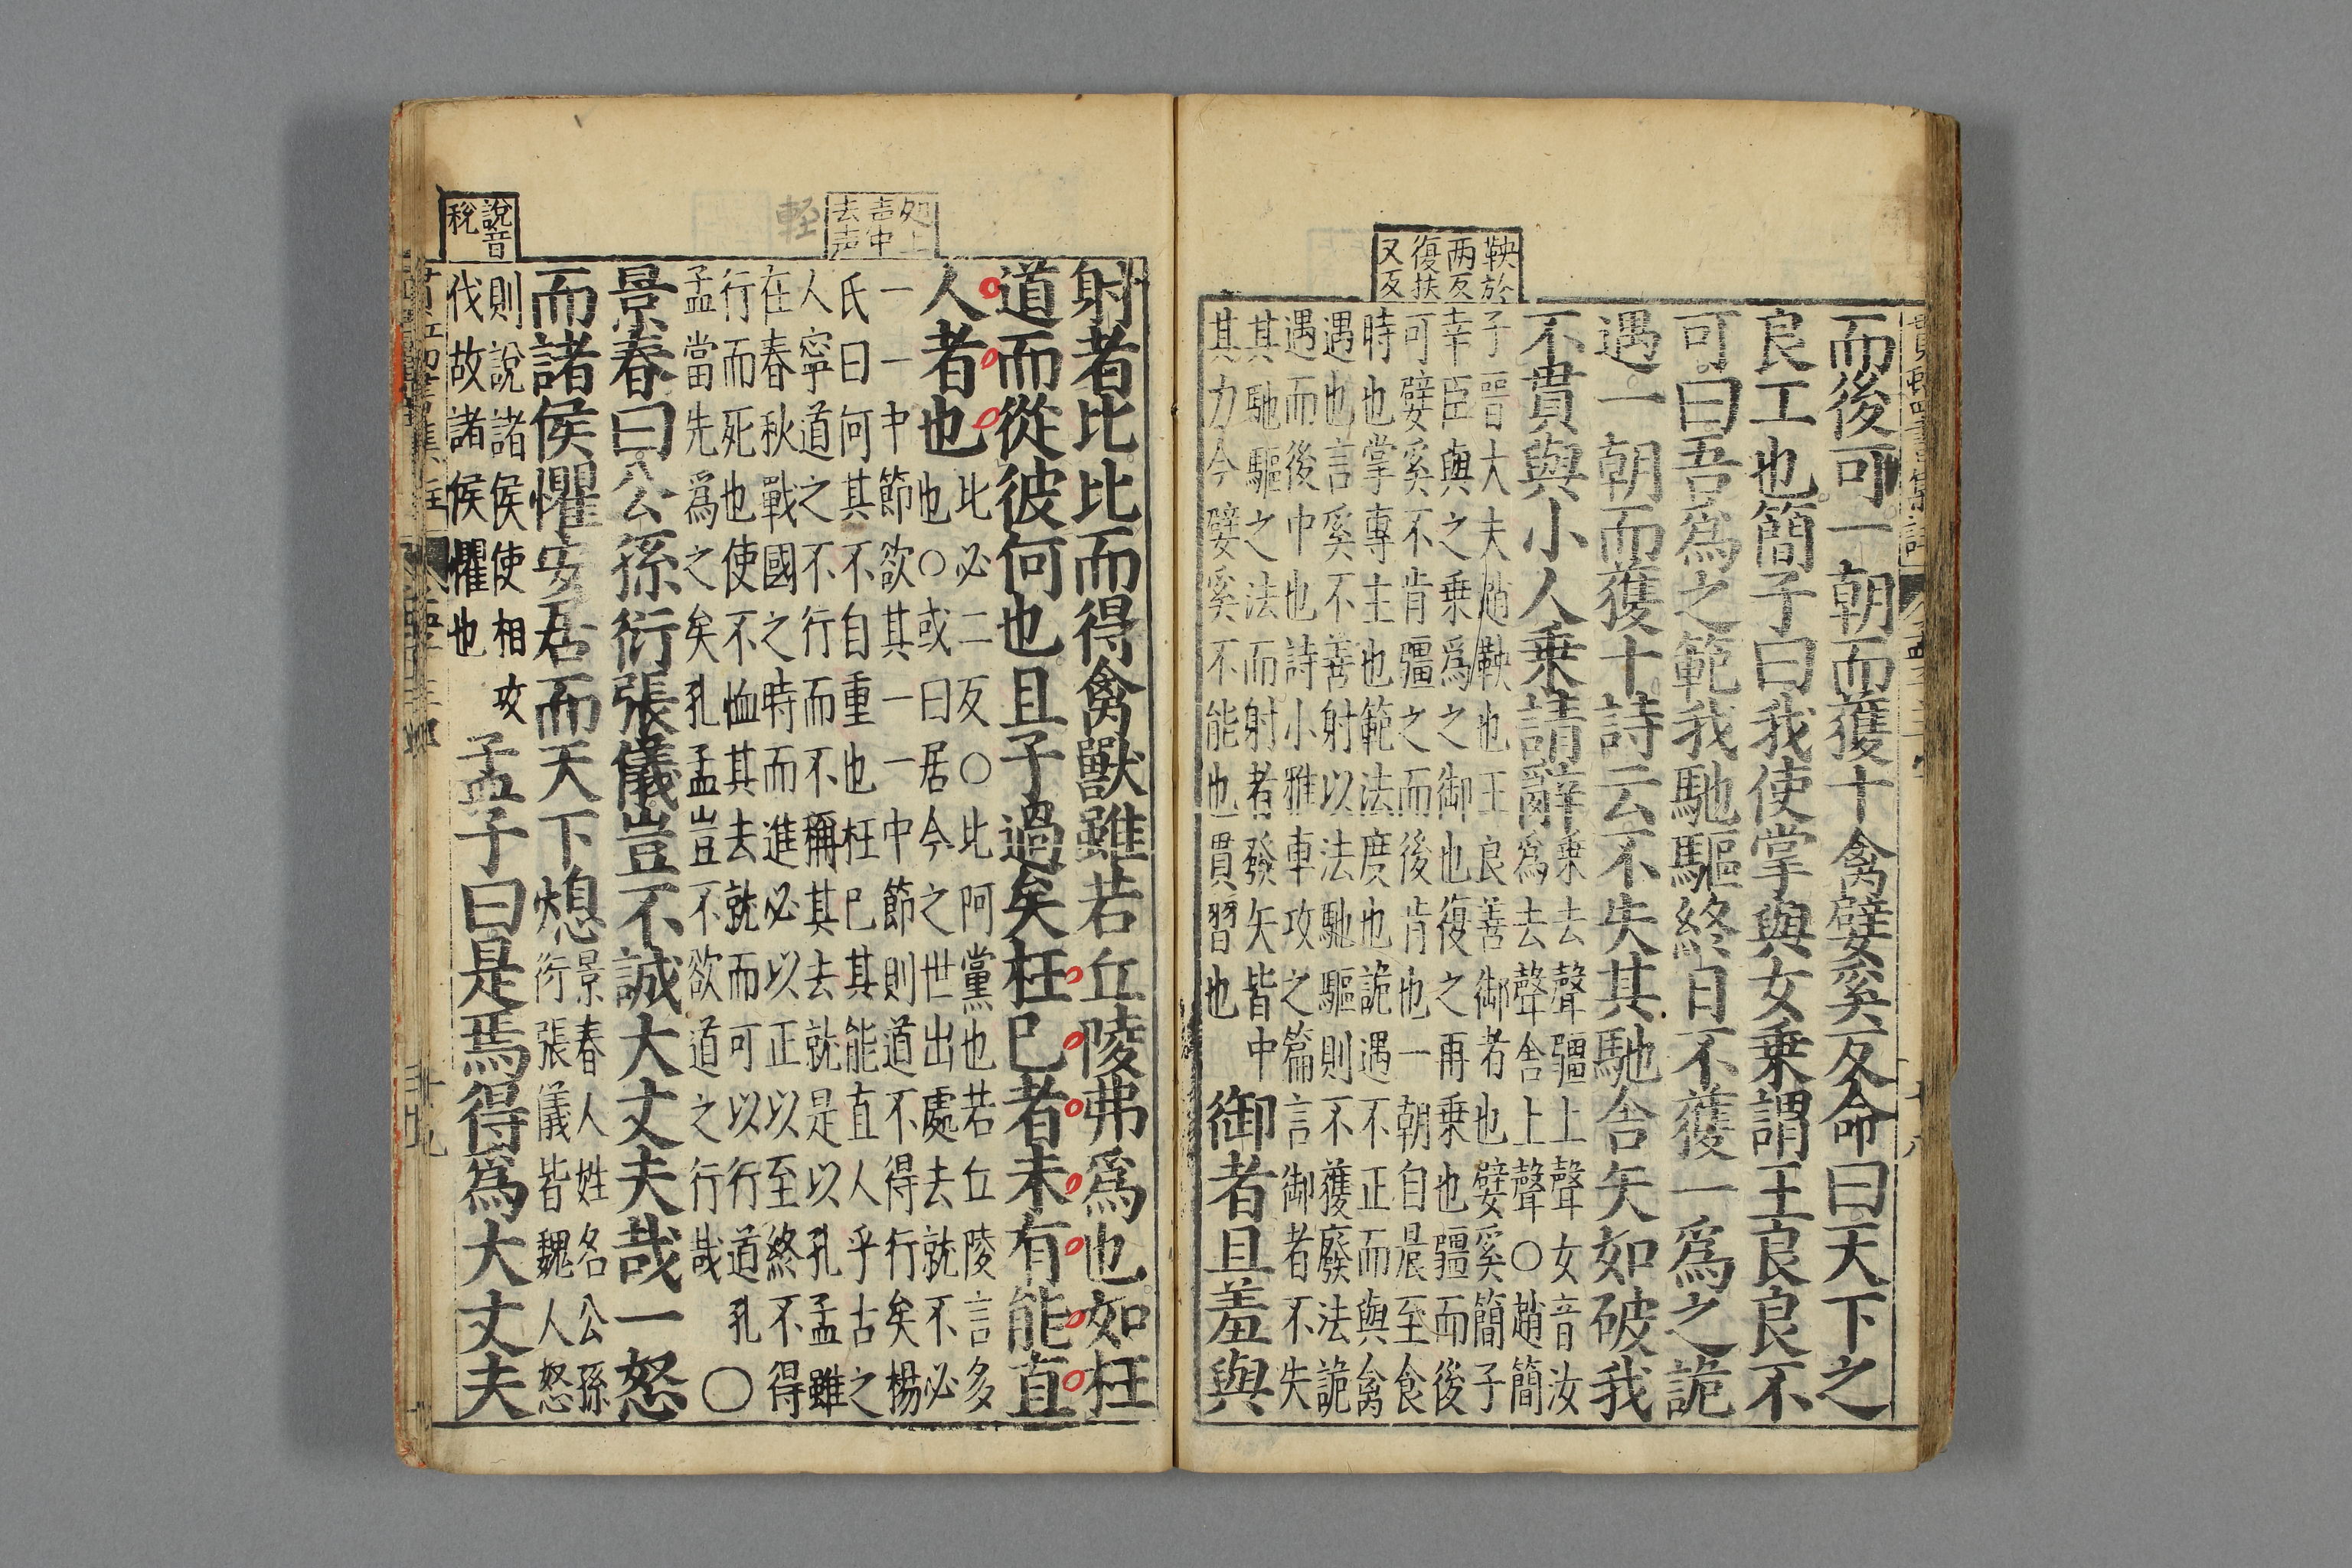 鞅於
两反
復扶
又反
而後可一朝而獲十禽嬖奚反命曰天下之
良工也簡子曰我使掌與女乗謂王良良不
可曰吾爲之範我馳驅終日不獲一爲之詭
遇一朝而獲十詩云不失其馳舍矢如破我
不貫與小人乗請辭
乗去聲疆上聲女音汝
爲去聲舍上聲○趙簡
子晋大夫趙鞅也王良善御者也嬖奚簡子
幸臣與之乗爲之御也復之再乗也疆而後
可嬖奚不肯疆之而後肯也一朝自晨至食
時也掌專主也範法度也詭遇不正而與禽
遇也言奚不善射以法馳驅則不獲廢法詭
遇而後中也詩小雅車攻之篇言御者不失
其馳驅之法而射者發矢皆中
其力今嬖奚不能也貫習也
御者且羞與
処上
声中
去声
輊
射者比比而得禽獸雖若丘陵弗爲也如枉
道而從彼何也且子過矣枉已者未有能直
人者也
比必二反○比阿黨也若丘陵言多
也○或曰居今之世出處去就不必
一一中節欲其一一中節則道不得行矣楊
氏曰何其不自重也枉已其能直人乎古之
人寧道之不行而不稱其去就是以孔孟雖
在春秋戰國之時而進必以正以至終不得
行而死也使不恤其去就而可以行道孔
孟當先爲之矣孔孟豈不欲道之行哉
○
景春曰公孫衍張儀豈不誠大丈夫哉一怒
而諸侯懼安居而天下熄
景春人姓名公孫
衍張儀皆魏人怒
說音
稅
則說諸侯使相攻
伐故諸侯懼也
孟子曰是焉得爲大丈夫